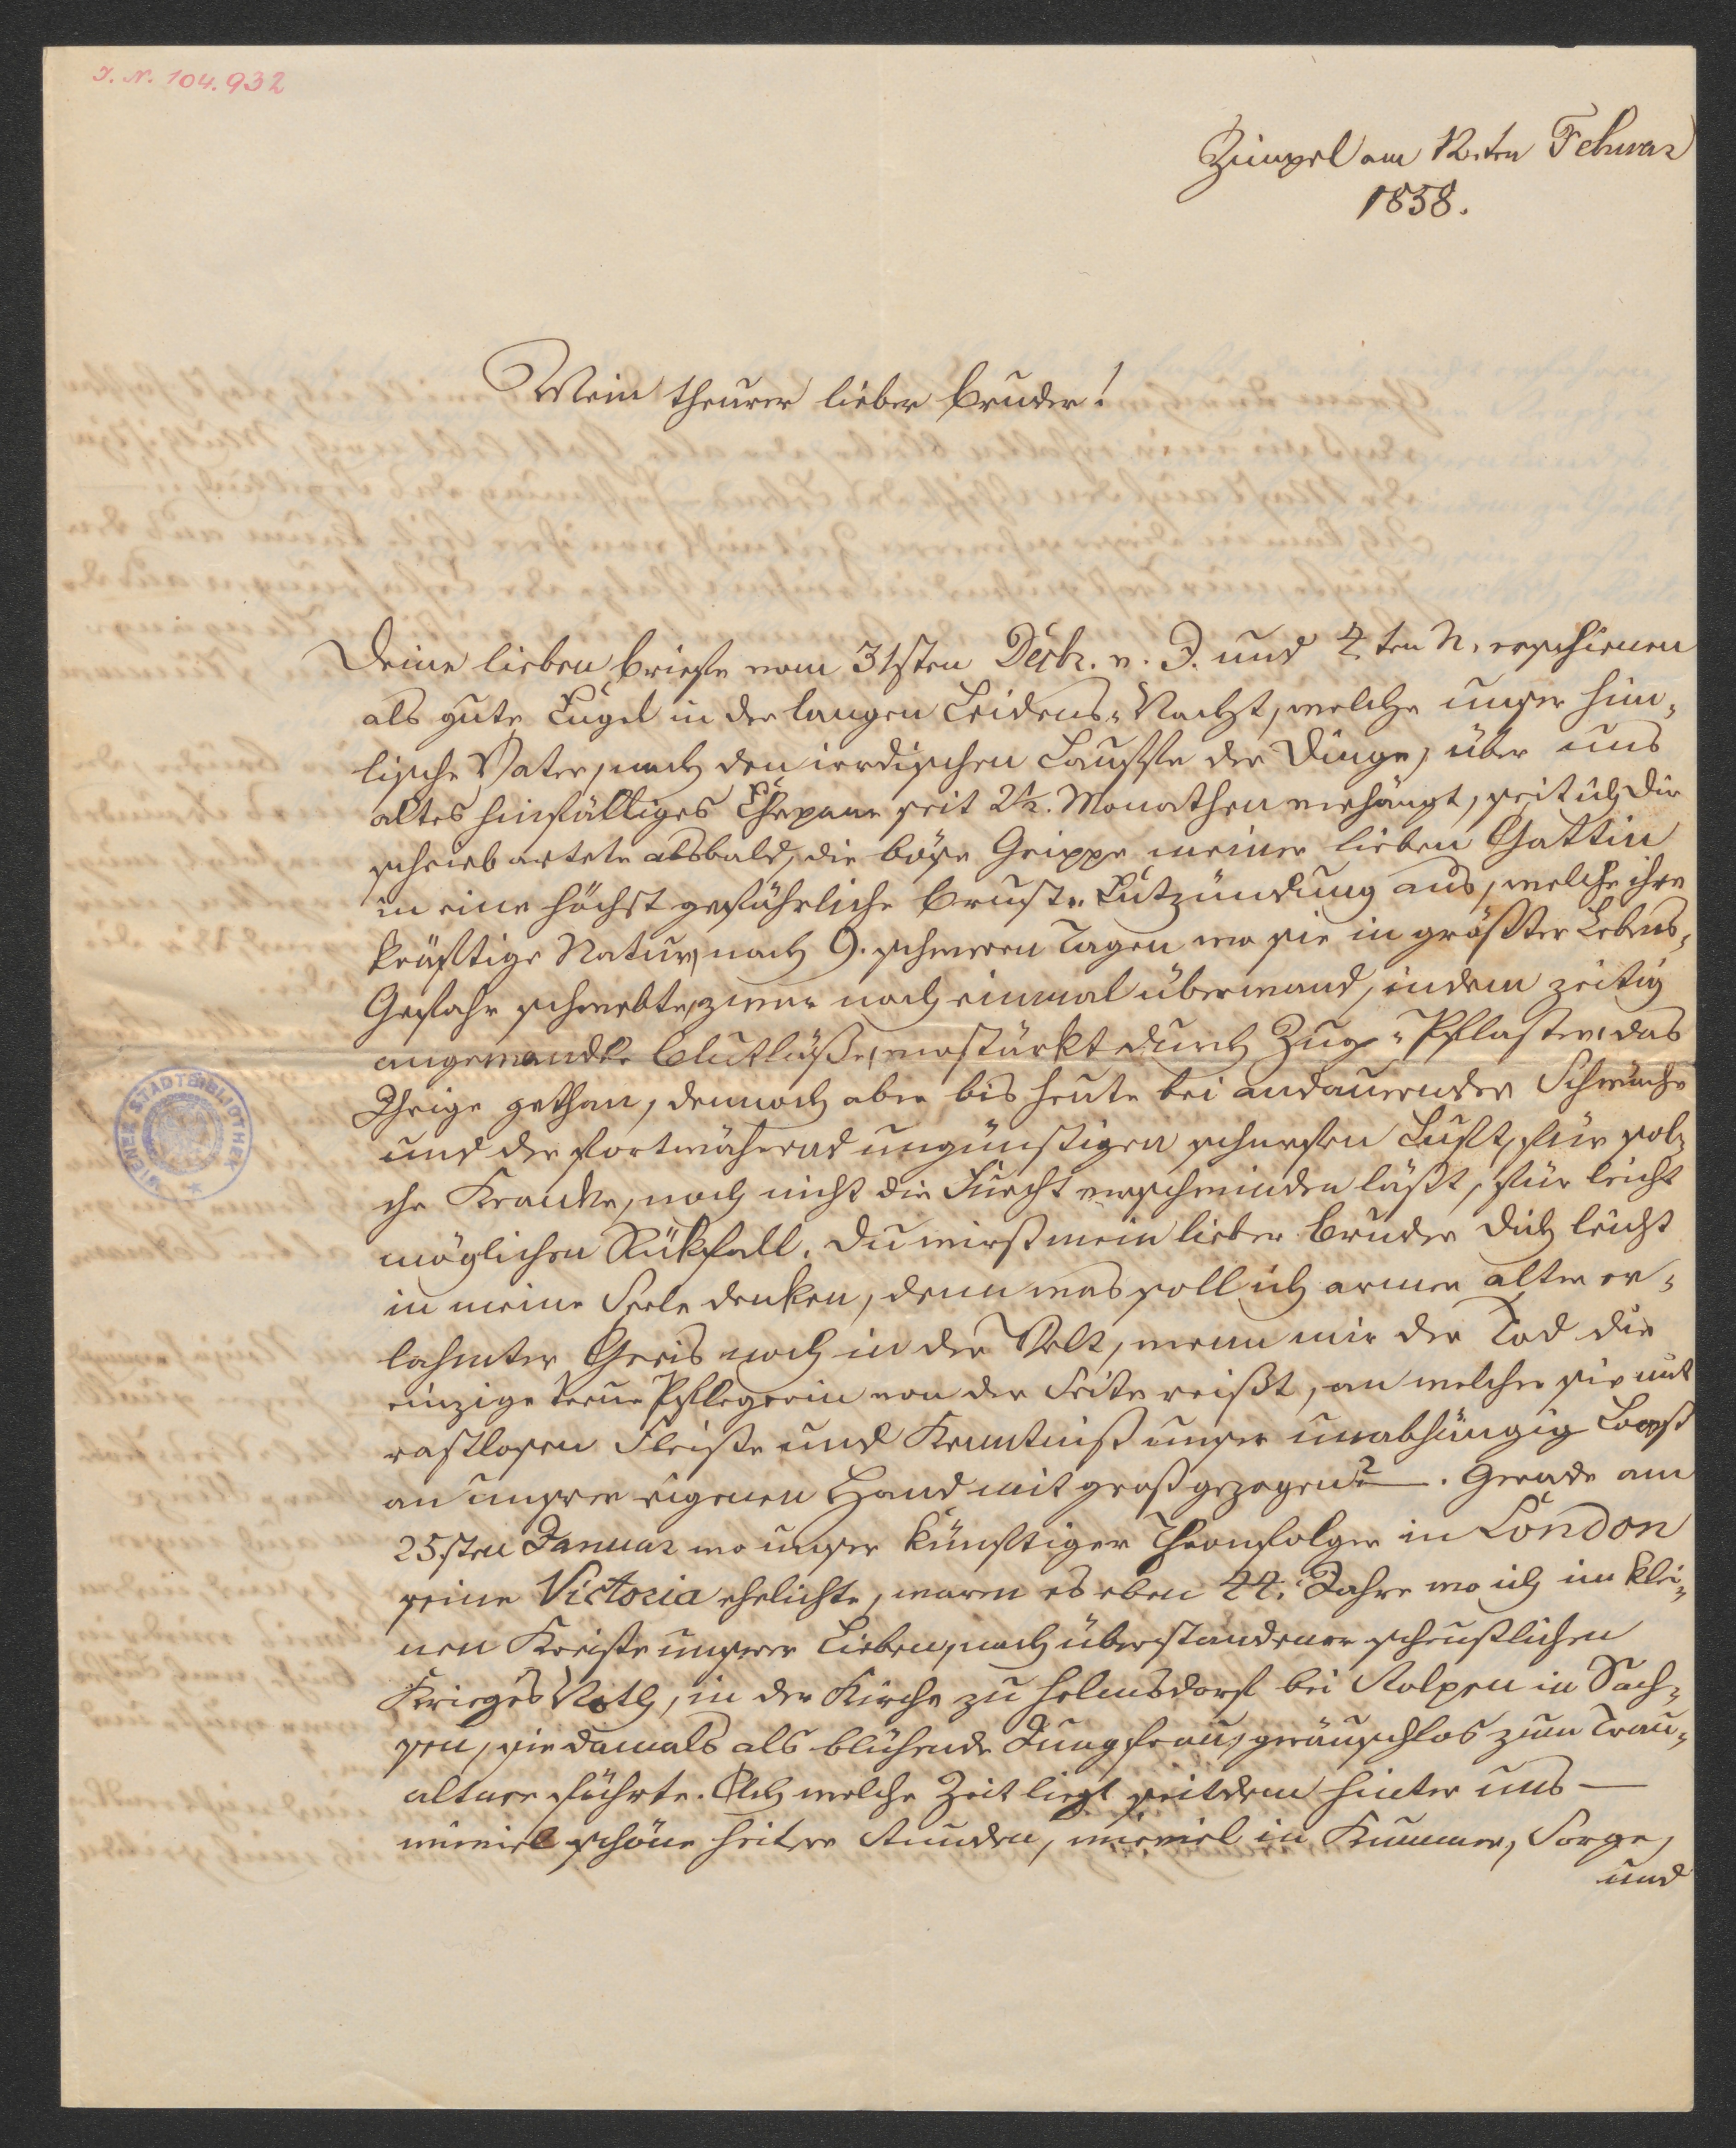 I. N. 104.932
Zimpel am 12ten Februar
1858.
Mein theurer lieber Bruder!
Deine lieben Briefe vom 31sten Decbr. v. J. und 4ten h. erschienen
als gute Engel in der langen Leidens-Nacht, welche unser him-
lische Vater, nach den irrdischen Lauffe der Dinge, über uns
altes hinfälliges Ehepaar seit 2½. Monathen verhängt, seit ich Dir
schrieb artete alsbald, die böse Grippe meiner lieben Gattin
in eine höchst gefährliche Brust-Entzündung aus, welche ihre
kräftige Natur, nach 9. schweren Tagen wo sie in größter Lebens-
Gefahr schwebte, zwar noch einmal überwand, indem zeitig
angewandte Blutläße, verstärkt durch Zug-Pflaster, das
Ihrige gethan, dennoch aber bis heute bei andauernder Schwäche
und der fortwährend ungünstigen scharfen Luft, für sol-
che Kranke, noch nicht die Furcht verschwinden läßt, für leicht
möglichen Rükfall. Du wirst mein lieber Bruder Dich leicht
in meine Seele denken, denn was soll ich armer alter er-
lahmter Greis noch in der Welt, wenn mir der Tod die
einzige treue Pflegerin von der Seite reißt, an welcher sie mit
rastlosen Fleiße und Kenntniß unser unabhängig Loos
an unserer eigenen Hand mit großgezogen? —. Gerade am
25sten Januar wo unser künftiger Thronfolger in London
seine Victoria ehelichte, waren es eben 44. Jahre wo ich im klei-
nen Kreise unserer Lieben, nach überstandener scheußlichen
Krieges Noth, in der Kirche zu Helmsdorf bei Stolpen in Sach-
sen, sie damals als blühende Jungfrau, geräuschlos zum Trau-
altare führte. Ach welche Zeit liegt seitdem hinter uns —
wieviel schöne heitere Stunden, wieviel in Kummer, Sorge,
und
WIENER STADTBIBLIOTHEK